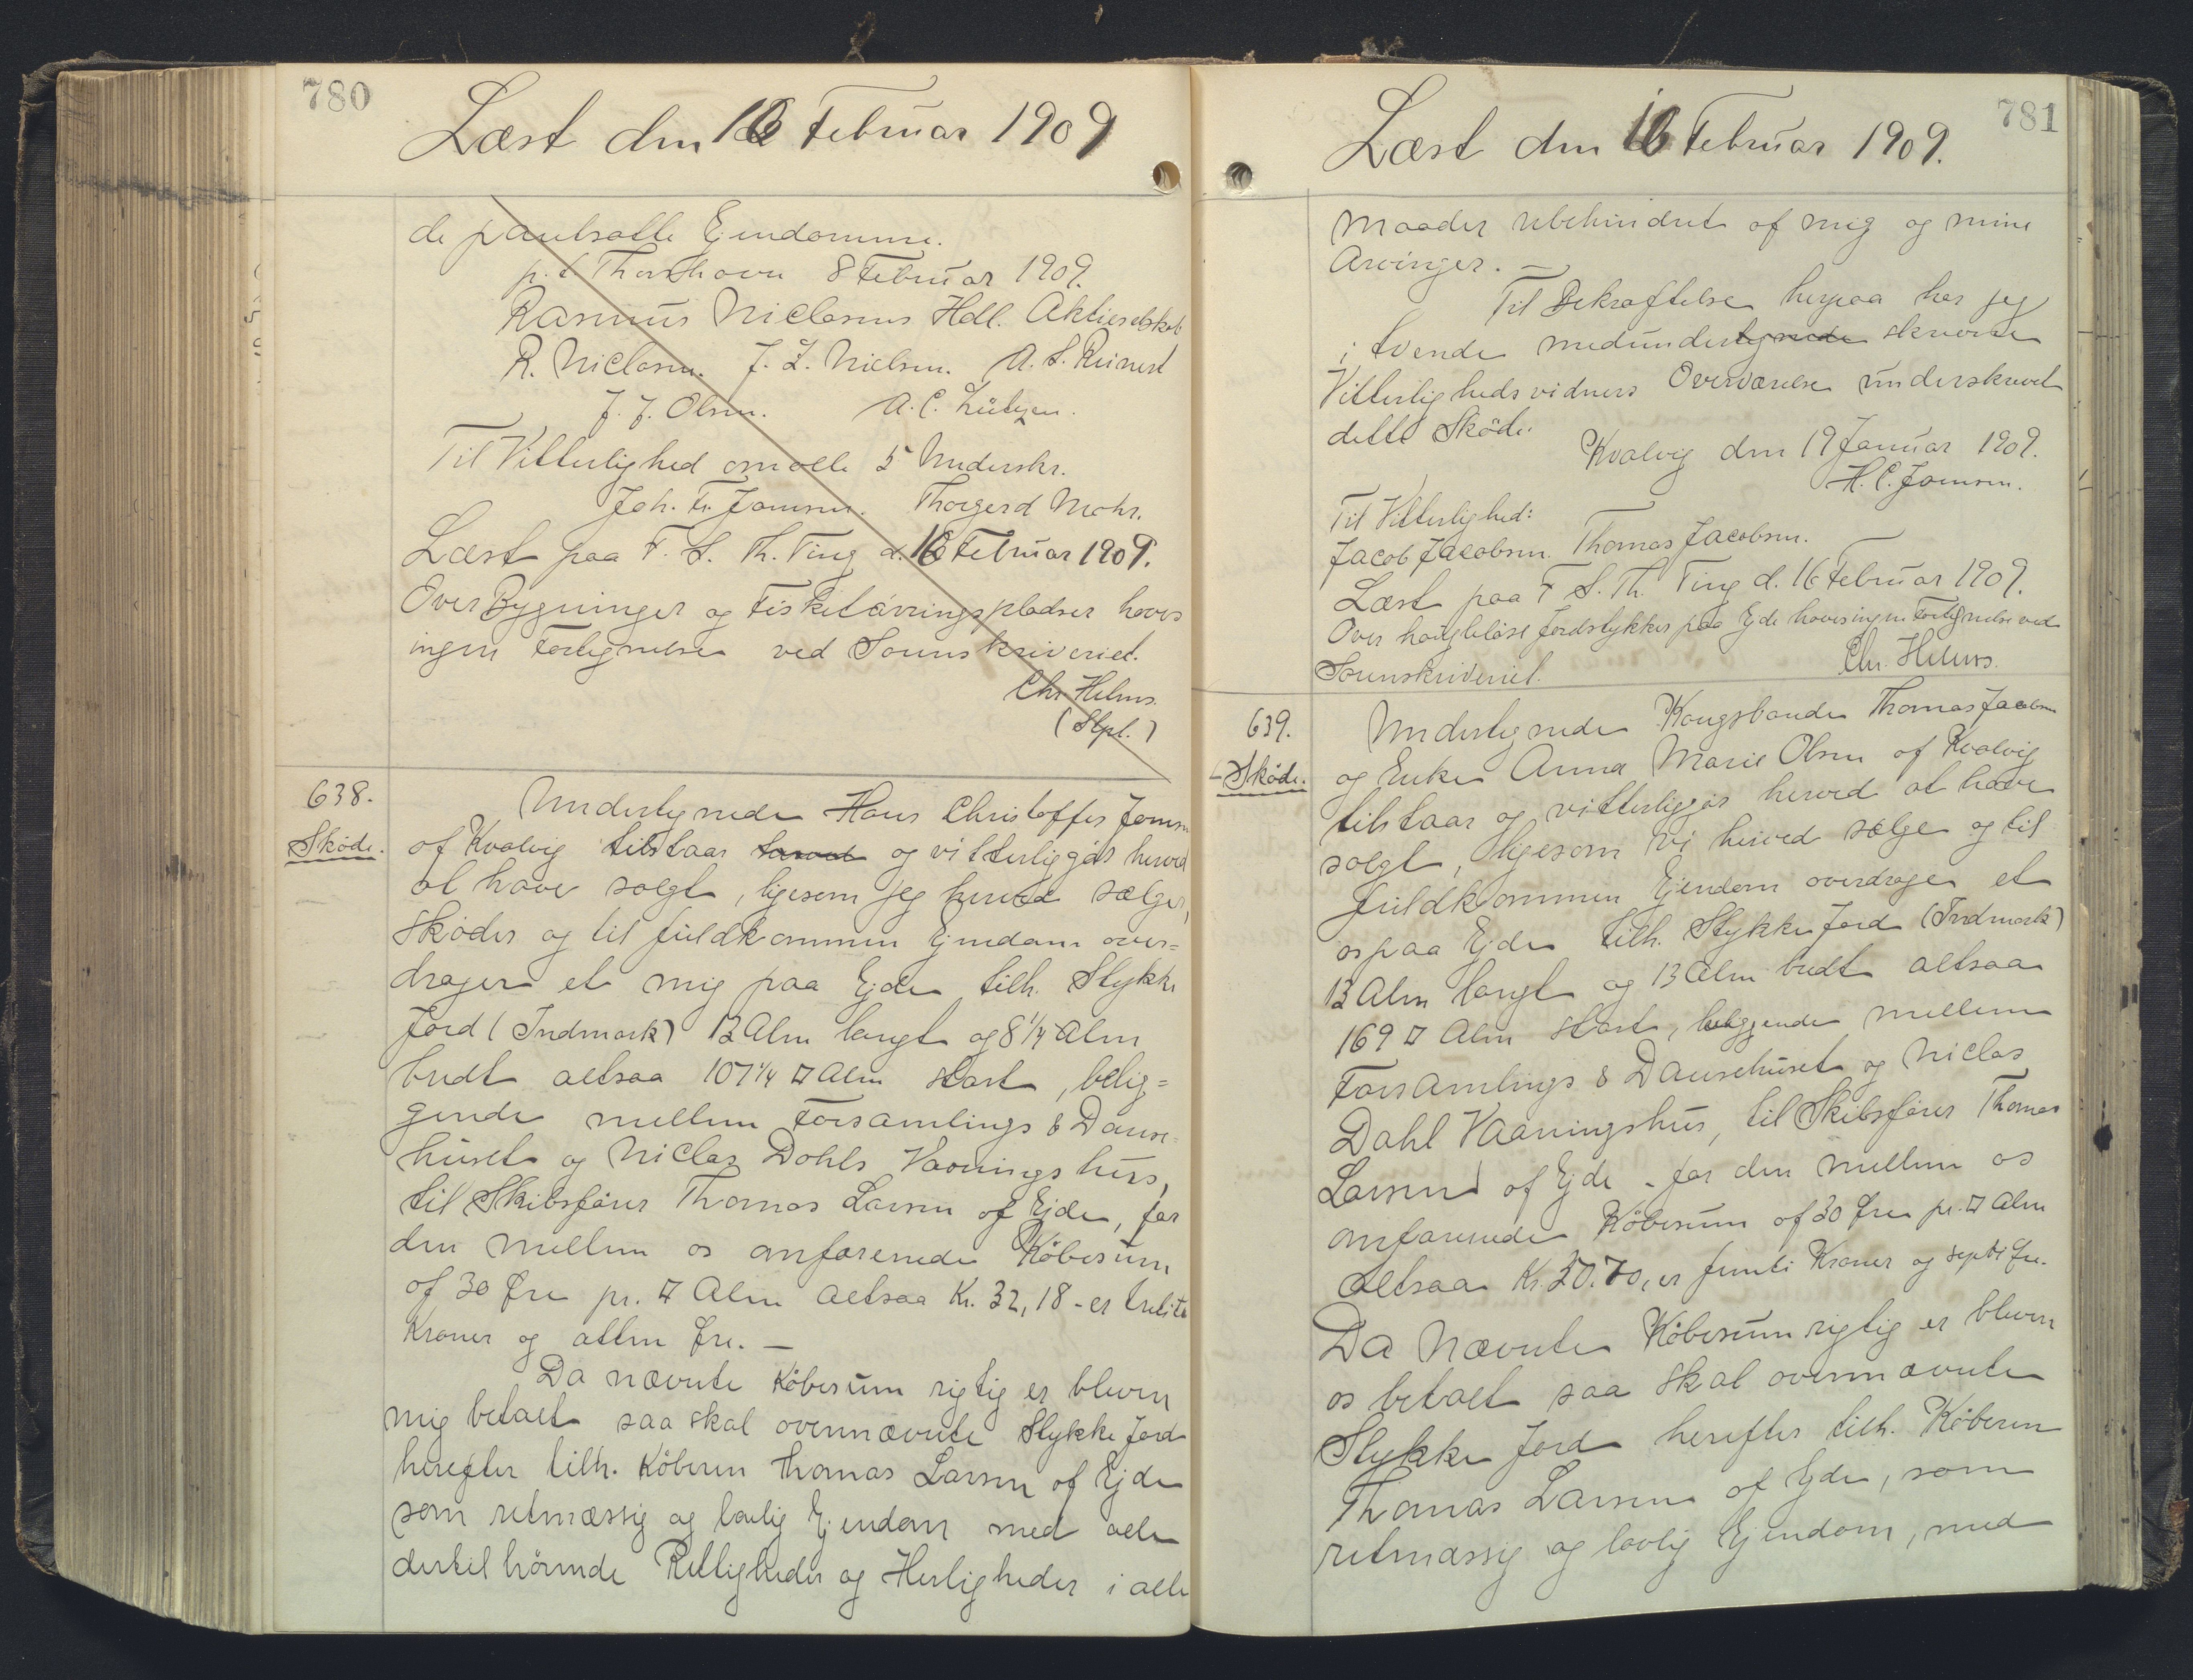 780
Læst den 16 Februar 1909
de pantsatte Ejendomme.
p.t. Thorshavn 8 Februar 1909.
Rasmus Niclasens Hdl. Aktieselskab
R. Niclasen. J. L. Nielsen. A. S. Reinert
J. J. Olsen. A. C. Lützen.
Til Vitterlighed om alle 5 Underskr.
Joh. Fr. Joensen. Thorgerd Mohr.
Læst paa F. S. Th. Ting d. 16 Februar 1909.
Over Bygninger og Fisketörringspladser haves
ingen Fortegnelse ved Sorenskriveriet.
Chr. Helms.
(Stpl.)
638.
Skøde.
Undertegnede Hans Christoffer Joensen
af Kvalvig tilstaar herved og vitterliggör herved
at have solgt, ligesom jeg herved sælger,
skøder og til fuldkommen Ejendom over=
drager et mig paa Ejde tilh. Stykke
Jord (Indmark) 13 Alm langt og 8 1/4 Alm
bredt altsaa 107 1/4 □ Alm stort, belig=
gende mellem Forsamlings & Danse=
huset og Niclas Dahls Vaaningshus,
til Skibsfører Thomas Larsen af Ejde, for
den mellem os omforenede Købesum
af 30 Øre pr. □ Alm altsaa Kr. 32,18 - er treti to
Kroner og atten Øre. —
Da nævnte Købesum rigtig er bleven
mig betalt saa skal ovennævnte Stykke Jord
herefter tilh. Køberen Thomas Larsen af Ejde
som retmæssig og lovlig Ejendom med alle
dertil hörende Rettigheder og Herligheder i alle
781
Læst den 16 Februar 1909.
Maader ubehindret af mig og mine
Arvinger. —
Til Bekræftelse herpaa har jeg
i tvende medundertegnede skrevne
Vitterlighedsvidners Overværelse underskrevet
dette Skøde.
Kvalvig den 19 Januar 1909.
H. C. Joensen.
Til Vitterlighed:
Jacob Jacobsen. Thomas Jacobsen.
Læst paa F. S. Th. Ting d. 16 Februar 1909.
Over haugeløse Jordstykker paa Ejde haves ingen Fortegnelse ved
Sorenskriveriet. Chr. Helms.
639.
Skøde.
Undertegnede Kongsbonde Thomas Jacobsen
og Enke Anna Marie Olsen af Kvalvig
tilstaar og vitterliggör herved at have
solgt, ligesom vi herved sælge og til
fuldkommen Ejendom overdrage et
os paa Ejde tilh. Stykke Jord (Indmark)
13 Alm langt og 13 Alm bredt altsaa
169 □ Alm stort, beliggende mellem
Forsamlings & Dansehuset og Niclas
Dahl Vaaningshus, til Skibsfører Thomas
Larsen af Ejde - for den mellem os
omforenede Købesum af 30 Øre pr. □ Alm
altsaa Kr. 50.70, er femti Kroner og septi Øre.
Da nævnte Købesum rigtig er bleven
os betalt saa skal ovennævnte
Stykke Jord herefter tilh. Køberen
Thomas Larsen af Ejde, som
retmæssig og lovlig Ejendom, med